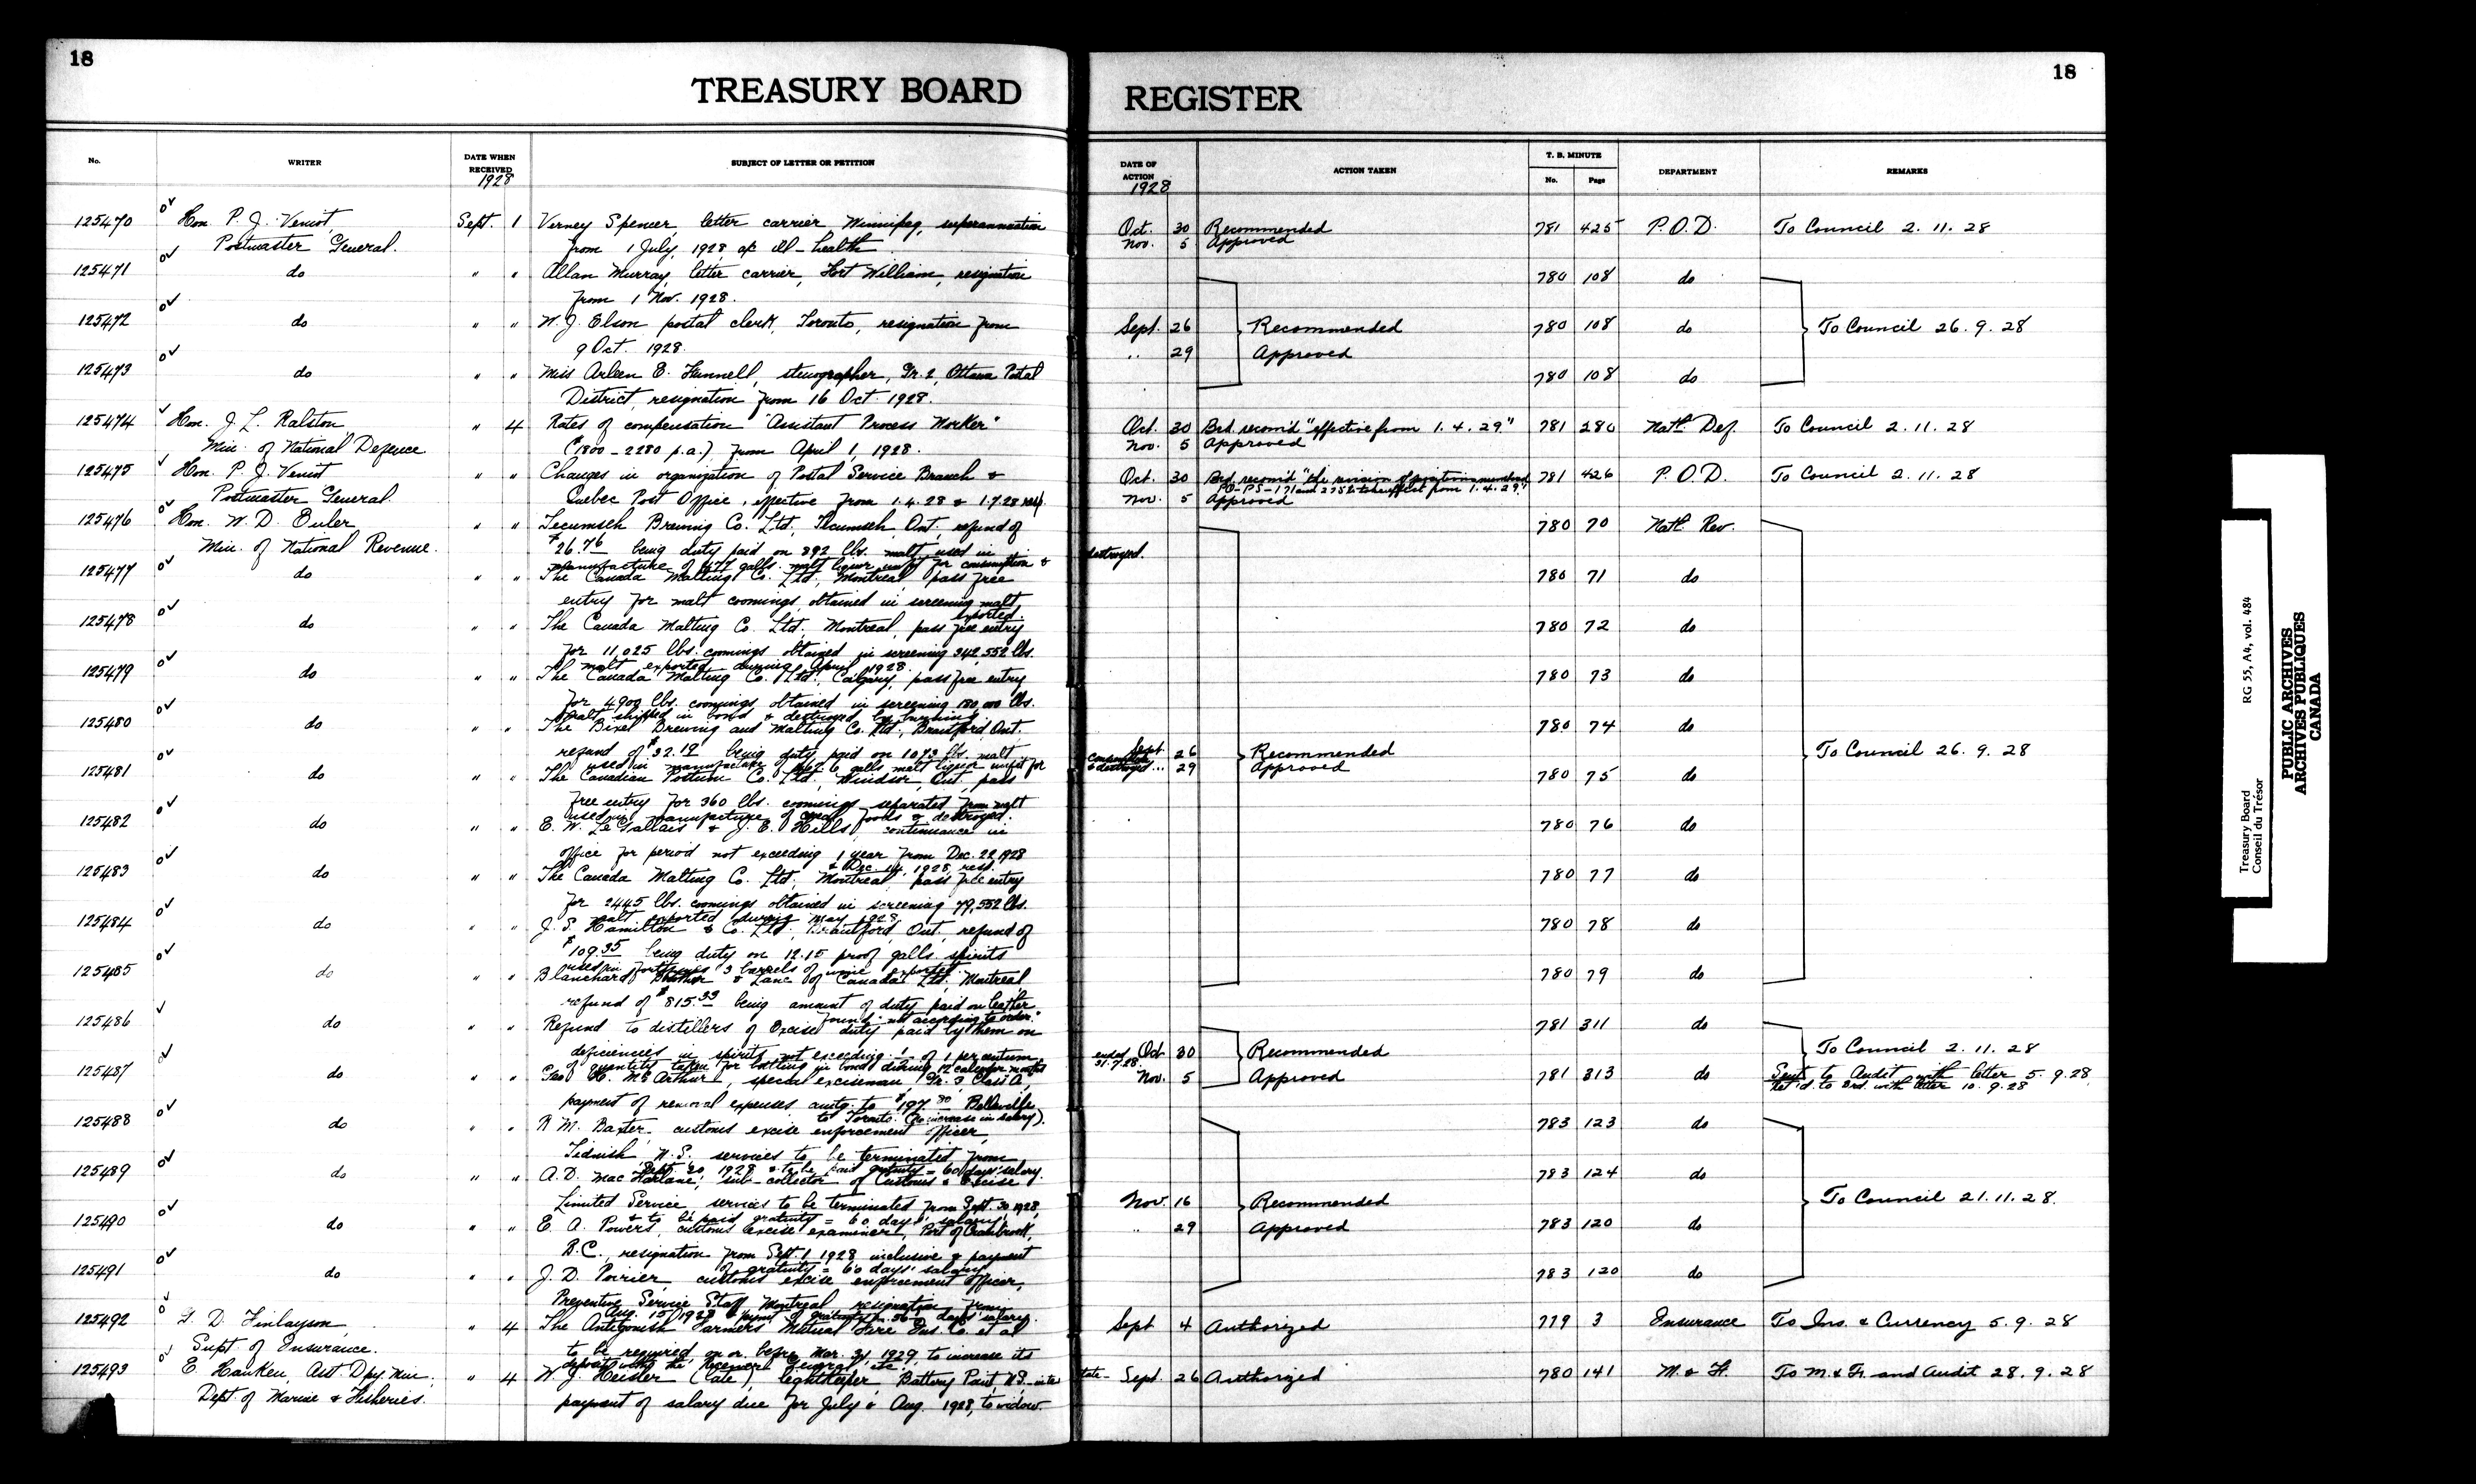 18
TREASURY BOARD
No.
WRITER
DATE WHEN RECEIVED
1928
SUBJECT OF LETTER OR PETITION
125470 Hon. P. J. Veniot, Sept. 1 Verney Spencer, letter carrier Winnipeg, superannuation
Postmaster General. from 1 July, 1928 a/c ill-health
125471 do " " Allan Murray, letter carrier, Fort William, resignation
from 1 Nov. 1928.
125472 do " " W. J. Elson postal clerk, Toronto, resignation from
9 Oct. 1928.
125473 do " " Miss Arleen E. Hunnell, stenographer, Gr. 2, Ottawa Postal
District, resignation from 16 Oct 1928.
125474 Hon. J. L. Ralston " 4 Rates of compensation "Assistant Process Worker"
Min. of National Defence ($1800-2280 p.a.) from April 1, 1928.
125475 Hon. P. J. Veniot " " Changes in organization of Postal Service Branch &
Postmaster General Quebec Post Office, effective from 1.4.28 & 1.7.28
125476 Hon. W. D. Euler " " Tecumseh Brewing Co. Ltd. Tecumseh, Ont., refund of
Min. of National Revenue. $26.76 being duty paid on 892 lbs. malt used in
manufacture of 1477 galls. malt liquor unfit for consumption & destroyed.
125477 do " " The Canada Malting Co. Ltd., Montreal, pass free
entry for malt coomings obtained in screening malt exported.
125478 do " " The Canada Malting Co. Ltd. Montreal, pass free entry
for 11,025 lbs. coomings obtained in screening 342,552 lbs.
malt exported during April 1928.
125479 do " " The Canada Malting Co. Ltd. Calgary, pass free entry
for 4900 lbs. coomings obtained in screening 180,000 lbs.
malt shipped in bond & destroyed by burning.
125480 do " " The Bixel Brewing and Malting Co. Ltd., Brantford Ont.
refund of $32.19 being duty paid on 1073 lbs. malt
used in manufacture of galls malt liquor unfit for consumption & destroyed
125481 do " " The Canadian Postum Co. Ltd. Windsor, Ont., pass
free entry for 360 lbs. coomings separated from malt
used in manufacture of cereal foods & destroyed.
125482 do " " E. W. Le Gallais & J. E. Hills continuance in
office for period not exceeding 1 year from Dec. 22 1928
& Dec. 14, 1928, resp.
125483 do " " The Canada Malting Co. Ltd., Montreal pass free entry
for 2445 lbs. coomings obtained in screening 79,552 lbs.
malt exported during May 1928.
125484 do " " J. S. Hamilton & Co. Ltd., Brantford, Ont., refund of
$109.35 being duty on 12.15 proof galls spirits
used in fortifying 3 barrels of wine exported.
125485 do " " Blanchard Brother & Lane of Canada Ltd, Montreal
refund of $815.33 being amount of duty paid on leather
found "not according to order."
125486 do " " Refund to distillers of Excise duty paid by them on
deficiencies in spirits not exceeding of 1 per centum
of quantity taken for bottling in bond during 12 calendar months ended 31.7.28.
125487 do " " Geo. H. McArthur, special exciseman Gr. 3 Class A,
payment of removal expenses amtg. to $197.80 Belleville
to Toronto. (No increase in salary).
125488 do " " R M. Baxter, customs excise enforcement officer,
Tidnish N.S. services to be terminated from
Sept. 30 1928 & to be paid gratuity = 60 days' salary.
125489 do " " A. D. MacFarlane, sub-collector of Customs & Excise
Limited Service services to be terminated from Sept. 30 1928,
& to be paid gratuity = 60 days' salary.
125490 do " " E. A. Powers, customs excise examiner, Port of Cranbrook,
B.C., resignation from Sept. 1 1928 inclusive & payment
of gratuity = 60 days' salary.
125491 do " " J. D. Poirier, customs excise enforcement officer,
Preventive Service Staff Montreal resignation from
Aug. 15 1928 & paymt of gratuity = days' salary.
125492 G. D. Finlayson, " 4 The Antigonish Farmers Mutual Fire Ins. Co. et al
Supt. of Insurance. to be required on or before Mar. 31 1929, to increase its
deposit with the Receiver General, etc.
125493 E. Hawken, Asst. Dpy. Min. " 4 W. J. Heisler (late), lightkeeper Battery Point, N.S.
Dept. of Marine & Fisheries. payment of salary due for July & Aug. 1928, to widow.
18
REGISTER
DATE OF ACTION
1928
ACTION TAKEN
T. B. MINUTE
No.
Page
DEPARTMENT
REMARKS
Oct. 30 Recommended 781 425 P.O.D. To Council 2.11.28
Nov. 5 Approved
780 108 do
Sept. 26 Recommended 780 108 do To Council 26.9.28
" 29 Approved
780 108 do
Oct. 30 Brd. recom'd "effective from 1.4.29." 781 280 Natl. Def. To Council 2.11.28
Nov. 5 Approved
Oct. 30 Brd. recom'd "the revision of positions numbered 781 426 P.O.D. To Council 2.11.28
PO-PS-171 and 2752 to take effect from 1.4.29."
Nov. 5 Approved
780 70 Natl. Rev.
780 71 do
780 72 do
780 73 do
780 74 do
Sept. 26 Recommended To Council 26.9.28
" 29 Approved
780 75 do
780 76 do
780 77 do
780 78 do
780 79 do
781 311 do
Oct 30 Recommended To Council 2.11.28
Nov. 5 Approved 781 313 do Sent to Audit with letter 5.9.28
Ret'd. to Brd. with letter 10.9.28
783 123 do
783 124 do
Nov. 16 Recommended To Council 21.11.28.
" 29 Approved 783 120 do
783 120 do
Sept 4 Authorized 779 3 Insurance To Ins. & Currency 5.9.28
Sept. 26 Authorized 780 141 M. & F. To M. & F. and Audit 28.9.28
Treasury Board RG 55, A4, vol. 484
Conseil du Trésor
PUBLIC ARCHIVES
ARCHIVES PUBLIQUES
CANADA